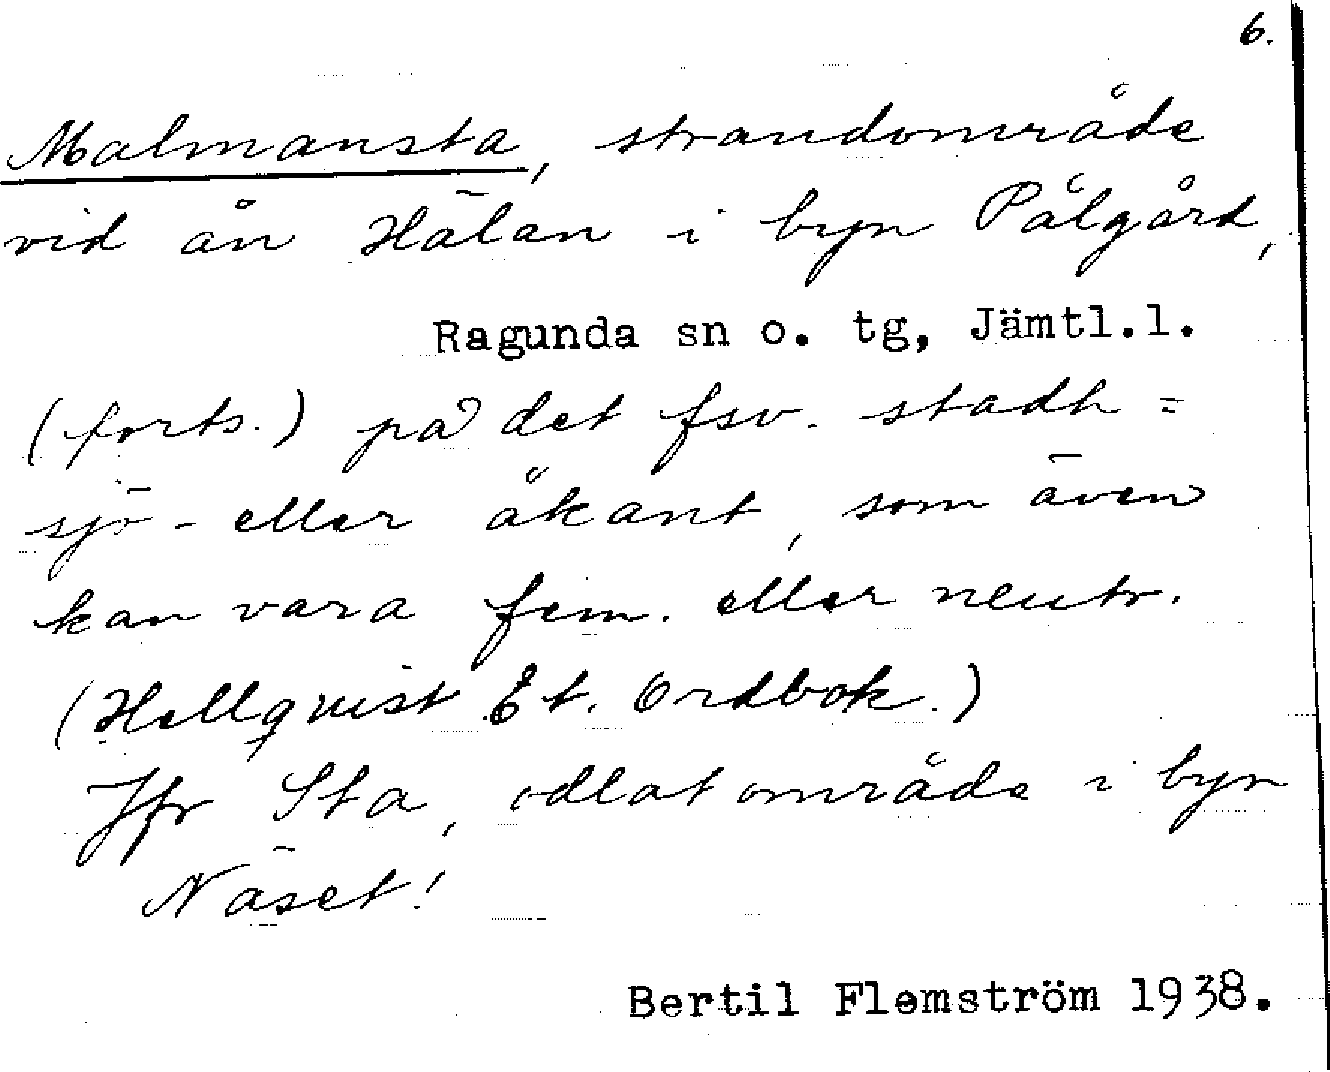 6.
Malmansta, strandområde
vid ån Hälan i byn Pålgård,
Ragunda sn o. tg, Jämtl.l.
(forts.) på det fsv. stadh =
sjö- eller åkant, som även
kan vara fem. eller neutr.
(Hellqvist Et. Ordbok.)
Jfr Sta, odlat område i byn
Näset!
Bertil Flemström 1938.